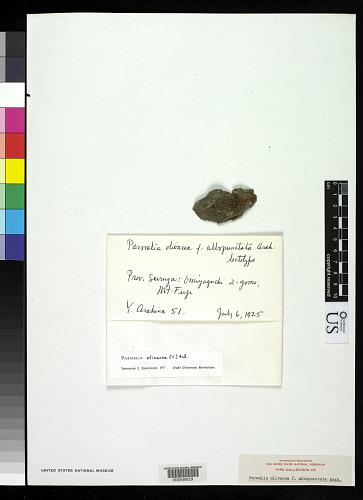 Parmelia olivacea f. albopunctata Asah.
lectotype
Prov. Suruga: Omiyaguchi 2-gome,
Mt. Fuji
Y. Asahina 51. July 6, 1925
PARMELIA olivacea (L.) Ach.
copyright reserved
cm
US
00068929
UNITED STATES NATIONAL MUSEUM
THE UNITED STATES NATIONAL HERBARIUM
TYPE COLLECTION OF
Parmelia olivacea f. albopunctata Asah.